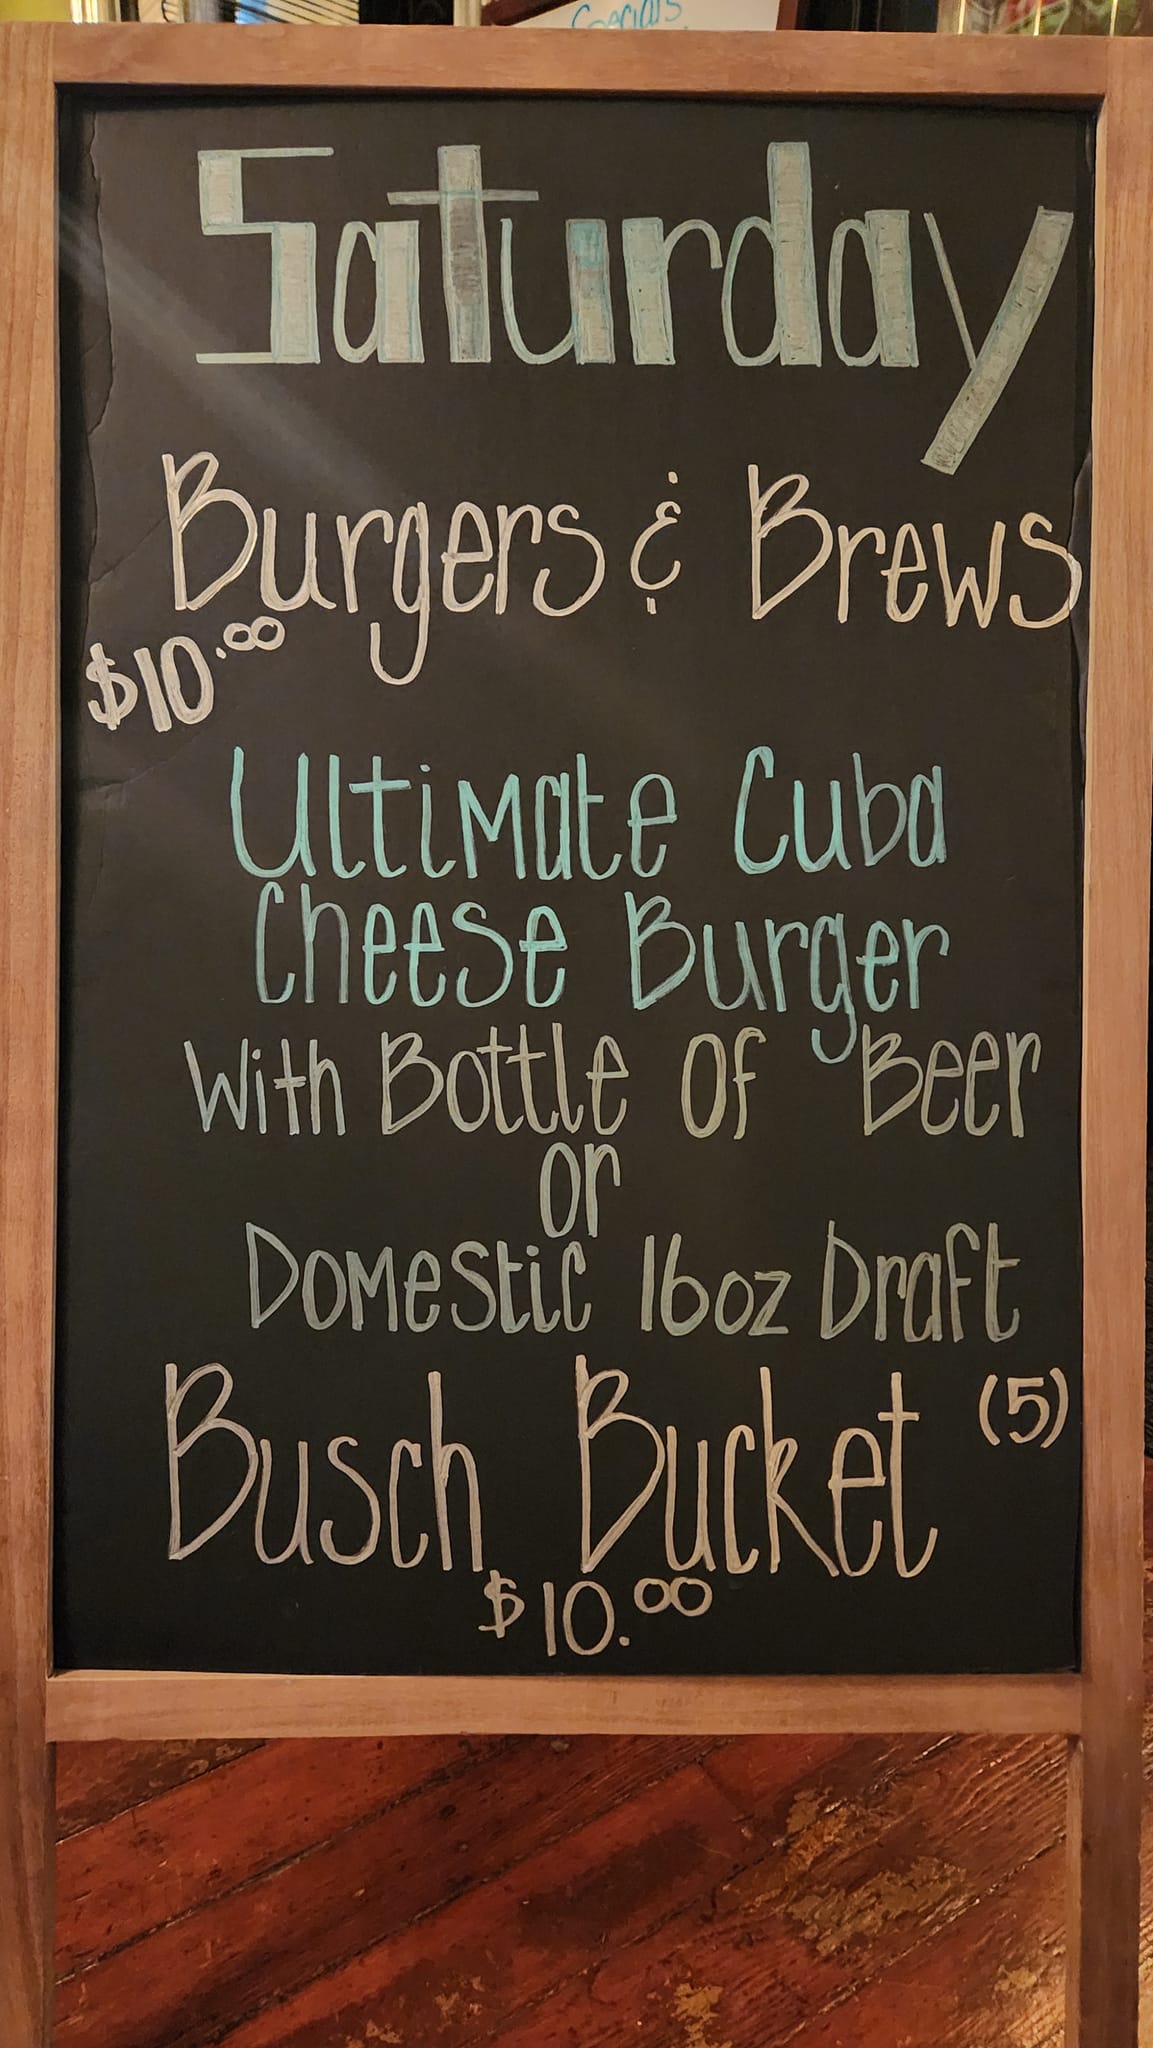 Specials
Saturday
Burgers & Brews
$10.00
Ultimate Cuba
Cheese Burger
With Bottle Of Beer
or
Domestic 16oz Draft
Busch Bucket (5)
$10.00